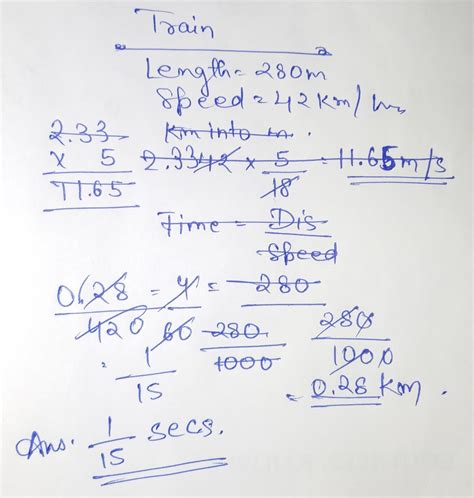 Train
Length = 280m
Speed = 42 Km/hr
Km into m.
2.33
x 5
11.65
2.33 42 x 5/18 = 11.65 m/s
Time = Dis/Speed
0.28/420 = 4/60 = 280
280/1000
280/1000
= 1/15
= 0.28 Km.
Ans. 1/15 secs.